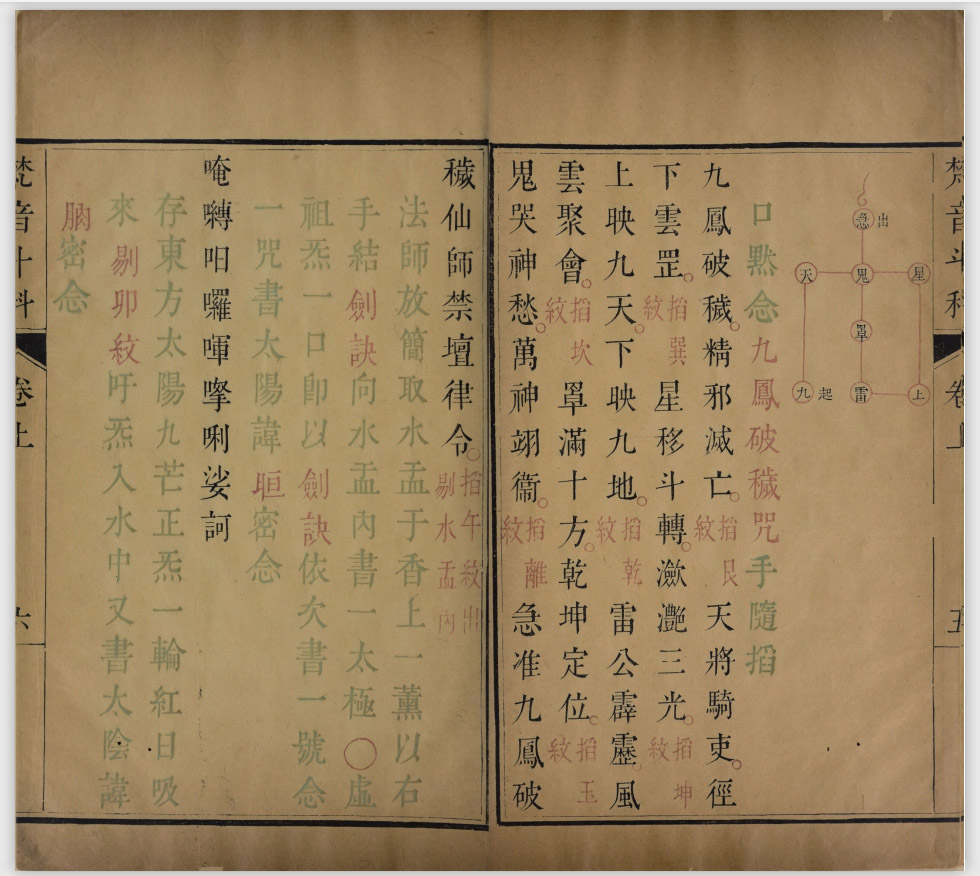 梵音斗科
卷上
五
急 出
天 鬼 星
罡
九 起 雷 上
口默念九鳳破穢咒手隨掐
九鳳破穢。精邪滅亡。掐艮紋 天將騎吏。徑
下雲罡。掐巽紋 星移斗轉。瀲灧三光。掐坤紋
上映九天。下映九地。掐乾紋 雷公霹靂。風
雲聚會。掐坎紋 罩滿十方。乾坤定位。掐玉紋
鬼哭神愁。萬神翊衞。掐離紋 急准九鳳破
穢仙師禁壇律令。掐午紋出剔水盂內
法師放簡取水盂于香上一薰以右
手結劍訣向水盂內書一太極〇虛
祖炁一口卽以劍訣依次書一號念
一咒書太陽諱 密念
唵囀呬囉㖶孯唎娑訶
存東方太陽九芒正炁一輪紅日吸
來剔卯紋吁炁入水中又書太陰諱
密念
梵音斗科
卷上
六